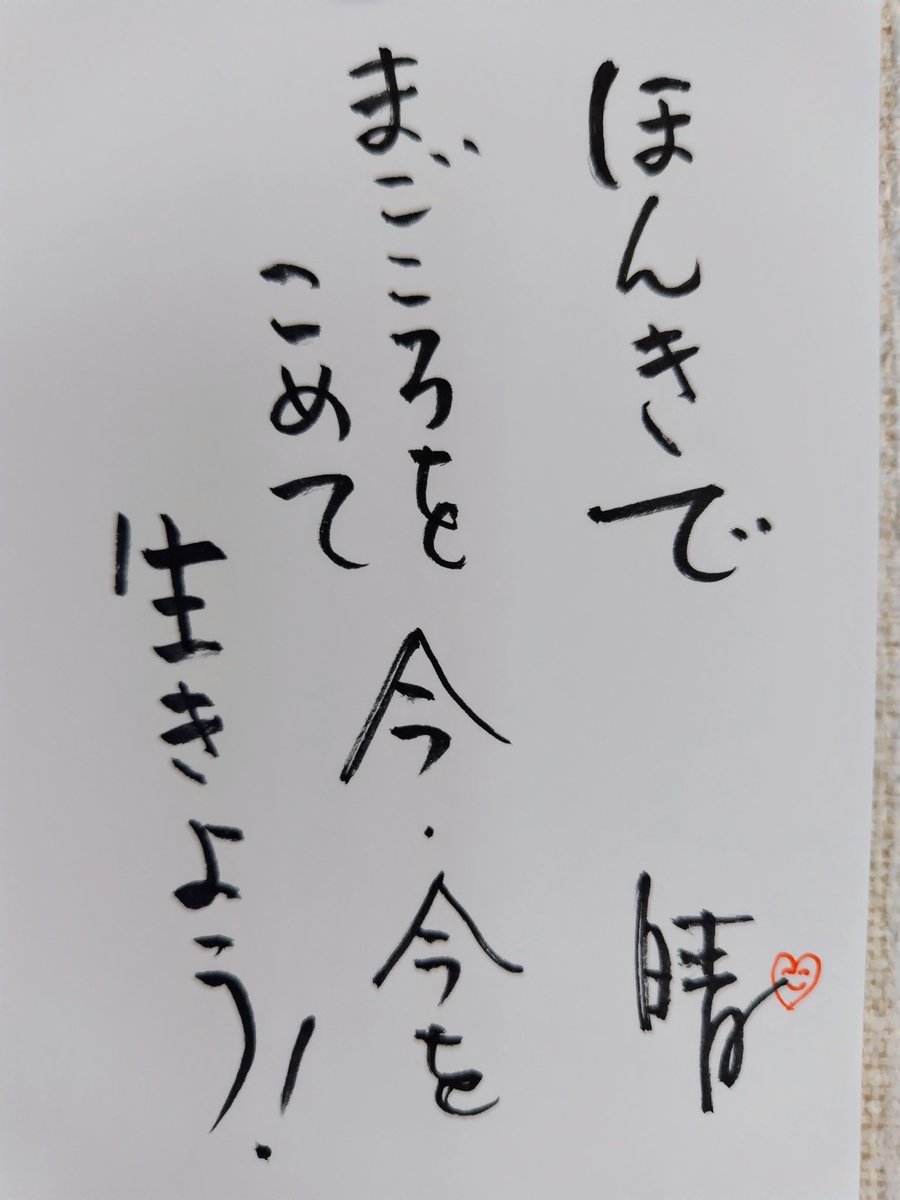 ほんきで
まごころを
こめて
今・今を
生きよう!
晴